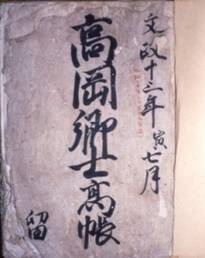 文政十三年寅七月
高岡郷士高帳